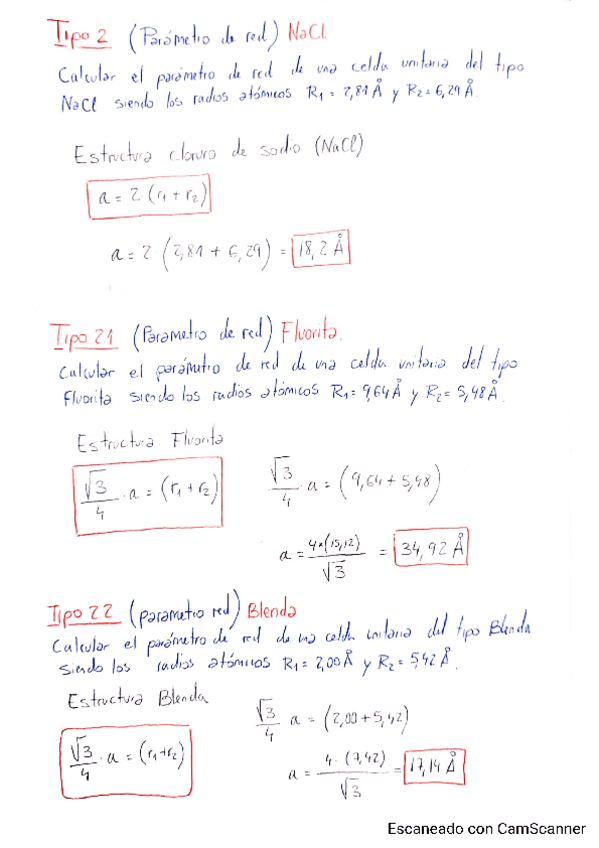 Tipo 2 (Parámetro de red) NaCl
Calcular el parámetro de red de una celda unitaria del tipo
NaCl siendo los radios atómicos R1 = 2,81 Å y R2 = 6,29 Å.
Estructura cloruro de sodio (NaCl)
a = 2 (r1 + r2)
a = 2 · (2,81 + 6,29) = 18,2 Å
Tipo 21 (Parametro de red) Fluorita.
Calcular el parámetro de red de una celda unitaria del tipo
Fluorita siendo los radios atómicos R1 = 9,64 Å y R2 = 5,48 Å.
Estructura Fluorita
√3/4 · a = (r1 + r2)
√3/4 · a = (9,64 + 5,48)
a = 4*(15,12)/√3 = 34,92 Å
Tipo 22 (parametro red) Blenda
Calcular el parámetro de red de una celda unitaria del tipo Blenda
siendo los radios atómicos R1 = 2,00 Å y R2 = 5,42 Å.
Estructura Blenda
√3/4 · a = (r1+r2)
√3/4 a = (2,00 + 5,42)
a = 4 · (7,42)/√3 = 17,14 Å
Escaneado con CamScanner